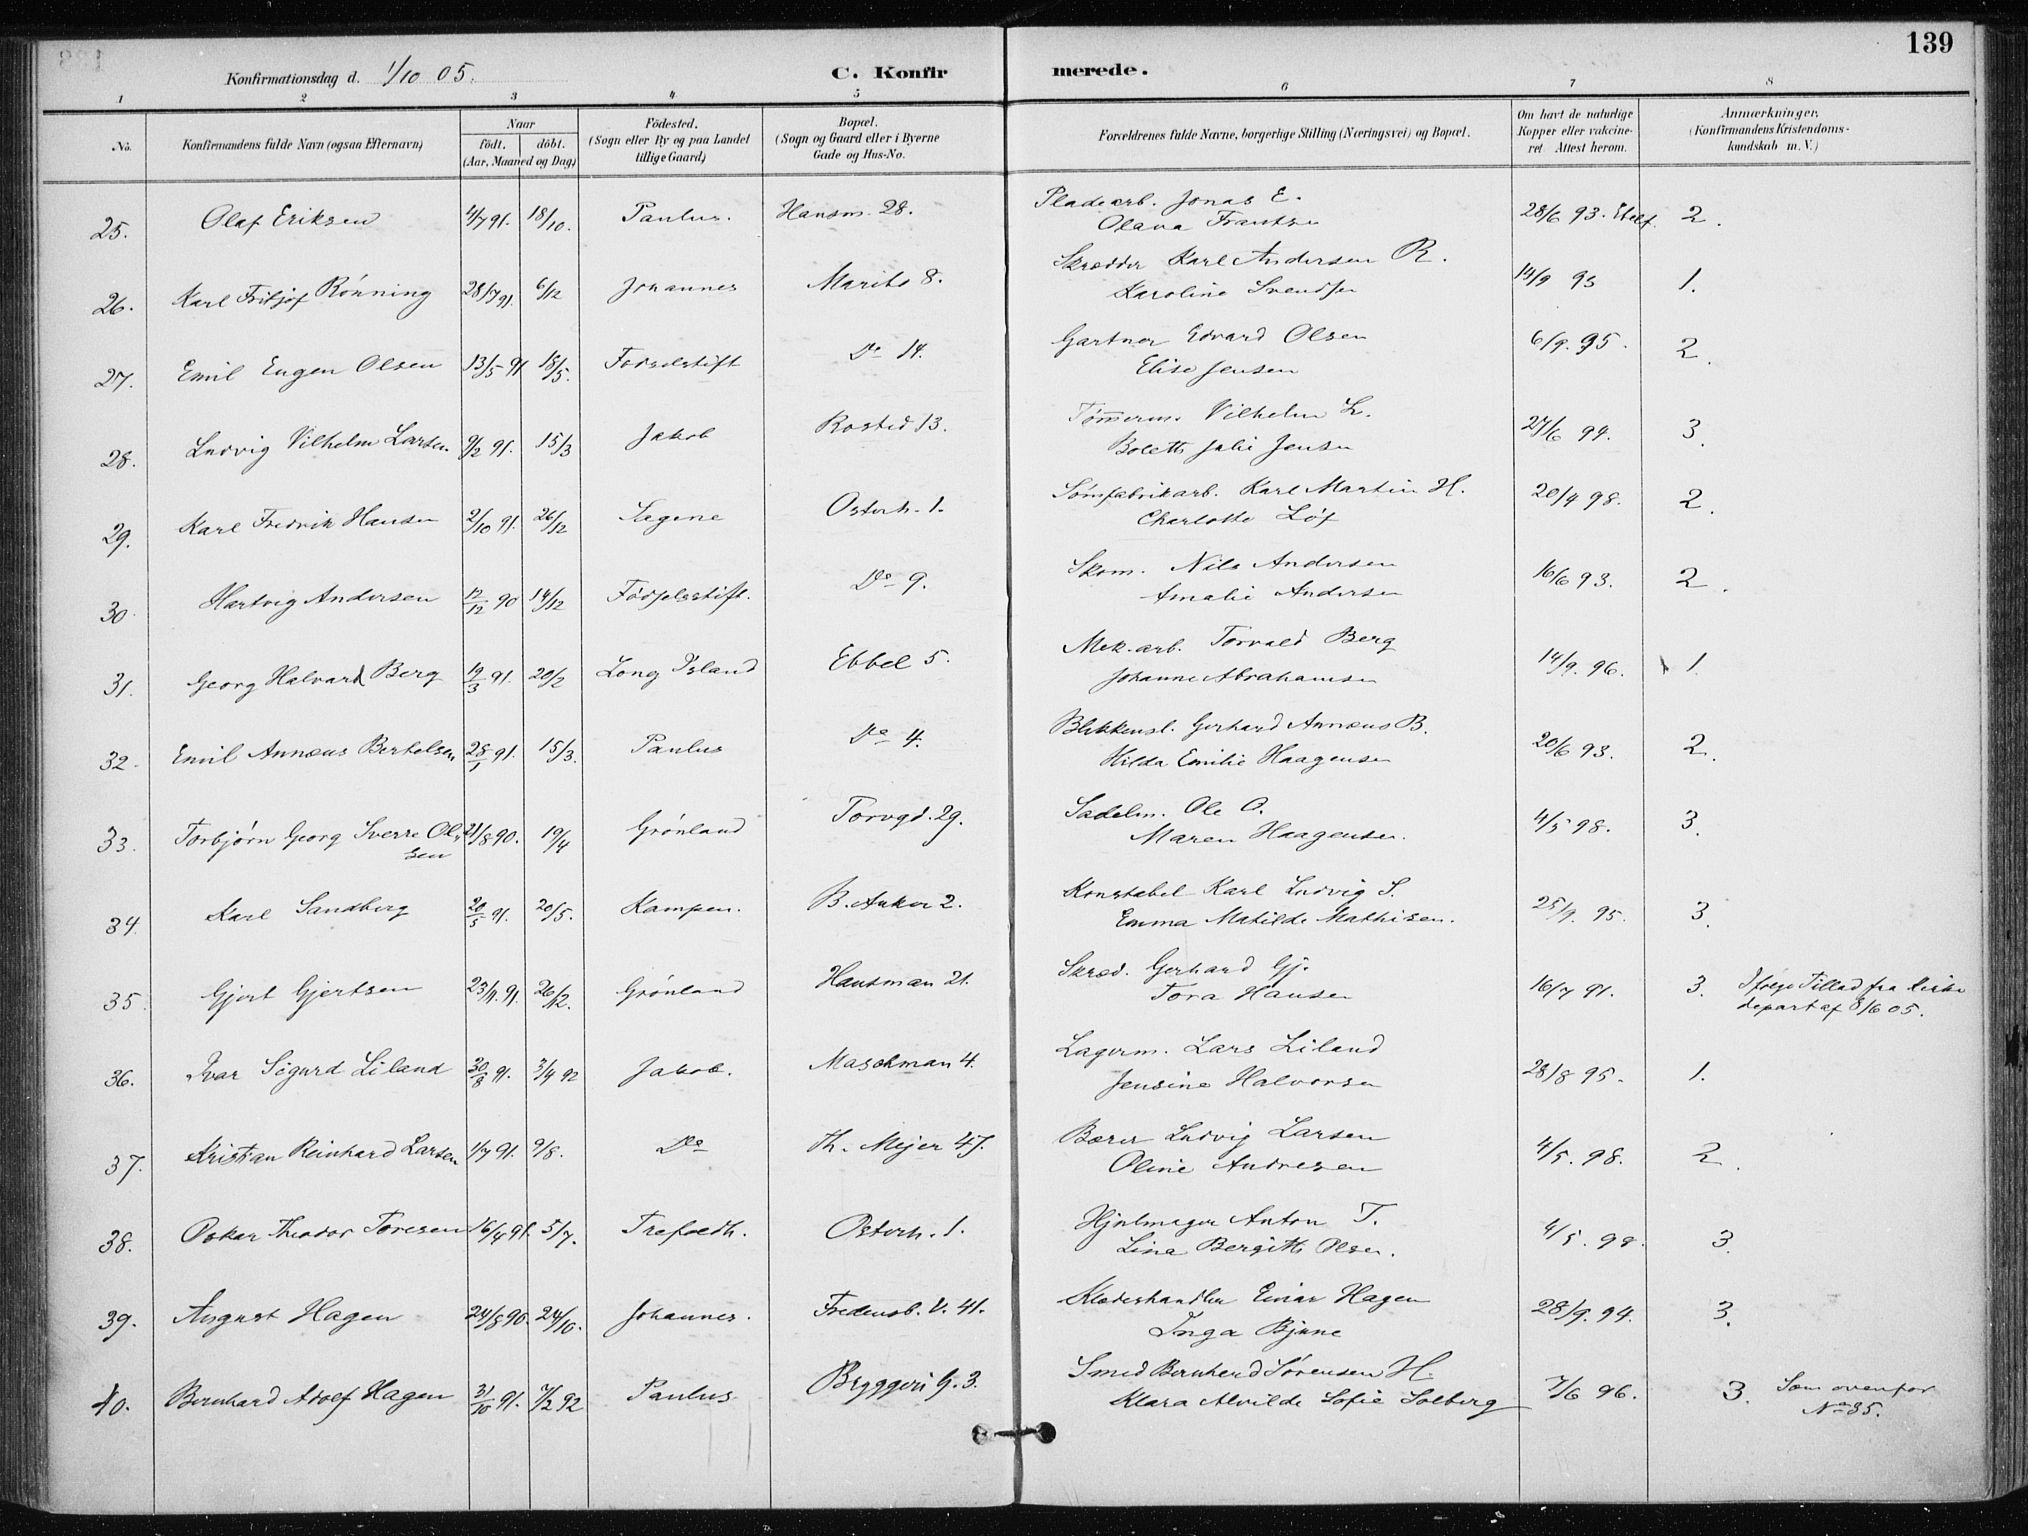 139
Konfirmationsdag d. 1/10 05.
C. Konfirmerede.
1 2 3 4 5 6 7 8
No.
Konfirmandens fulde Navn (ogsaa Efternavn)
Naar
födt. döbt.
(Aar, Maaned og Dag)
Födested.
(Sogn eller By og paa Landet
tillige Gaard)
Bopæl.
(Sogn og Gaard eller i Byerne
Gade og Hus-No.
Forældrenes fulde Navne, borgerlige Stilling (Næringsvei) og Bopæl.
Om havt de naturlige
Kopper eller vakcine-
ret Attest herom.
Anmærkninger.
(Konfirmandens Kristendoms-
kundskab m. V.)
25. Olaf Eriksen 4/7 91. 18/10. Paulus. Hausm. 28. Pladearb. Jonas E. 28/6 93. 2.
Olava Frantsen
26. Karl Fritjof Rönning 28/7 91. 6/12 Johannes Marito 8. Skrædder Karl Andersen R. 14/9 93 1.
Karoline Svendsen
27. Emil Eugen Olsen 13/5 91 18/5. Födselsstift Do 14. Gartner Edvard Olsen 6/9. 95. 2.
Elise Jensen
28. Ludvig Vilhelm Larsen. 9/2 91. 15/3 Jakob Rosted 13. Tömmerm. Vilhelm L. 27/6 94. 3.
Bolette Julie Jensen
29. Karl Fredrik Hansen 2/10 91. 26/12 Sagene Osterh. 1. Sömfabrikarb. Karl Martin H. 20/4 98. 2.
Charlotte Löf
30. Hartvig Andersen 12/12 90 14/12 Födselsstift. Do 9. Skom. Nils Andersen 16/6 93. 2.
Amalie Andersen
31. Georg Halvard Berg 19/3 91. 20/2 Long Island Ebbel 5. Mek. arb. Torvald Berg 14/9. 96. 1.
Johanne Abrahamsen
32. Emil Annæus Bertelsen 28/1 91. 15/3. Paulus Do 4. Blikkensl. Gerhard Annæus B. 20/6 93. 2.
Hilda Emilie Haagensen
33. Torbjörn Georg Sverre Ol- 21/8 90. 19/4 Grönland Torvgd. 29. Sadelm. Ole O. 4/5 98. 3.
sen Maren Haagensen.
34. Karl Sandberg 20/5 91. 20/5. Kampen. B. Anker 2. Konstabel Karl Ludvig S. 25/9. 95. 3.
Emma Matilde Mathisen.
35. Gjert Gjertsen 23/9. 91. 26/12. Grönland Hausman 21. Skræd. Gerhard Gj. 16/7 91. 3. Ifölge Tillad. fra Kirke
Tora Hansen depart af 8/6 05.
36. Ivar Sigurd Liland 30/8 91. 3/4 92 Jakob. Maschman 4. Lagerm. Lars Liland 28/8 95. 1.
Jensine Halvorsen
37. Kristian Reinhard Larsen 1/7 91. 9/8. Do Th. Mejer 47. Bærer Ludvig Larsen 4/5. 98. 2.
Oline Andresen
38. Oskar Theodor Toresen 16/4 91. 5/7. Trefoldh. Osterh. 1. Hjulmager Anton T. 4/5. 98. 3.
Lina Bergitte Olsen.
39. August Hagen 24/8 90. 24/10. Johannes. Fredensb. V. 41. Klædeshandler Einar Hagen 28/9. 94. 3.
Inga Bjune
40. Bernhard Adolf Hagen 31/10 91. 7/2 92 Paulus Bryggeri G. 3. Smed Bernhard Sörensen H. 7/6 96. 3. Som ovenfor
Klara Alvilde Sofie Solberg No 35.